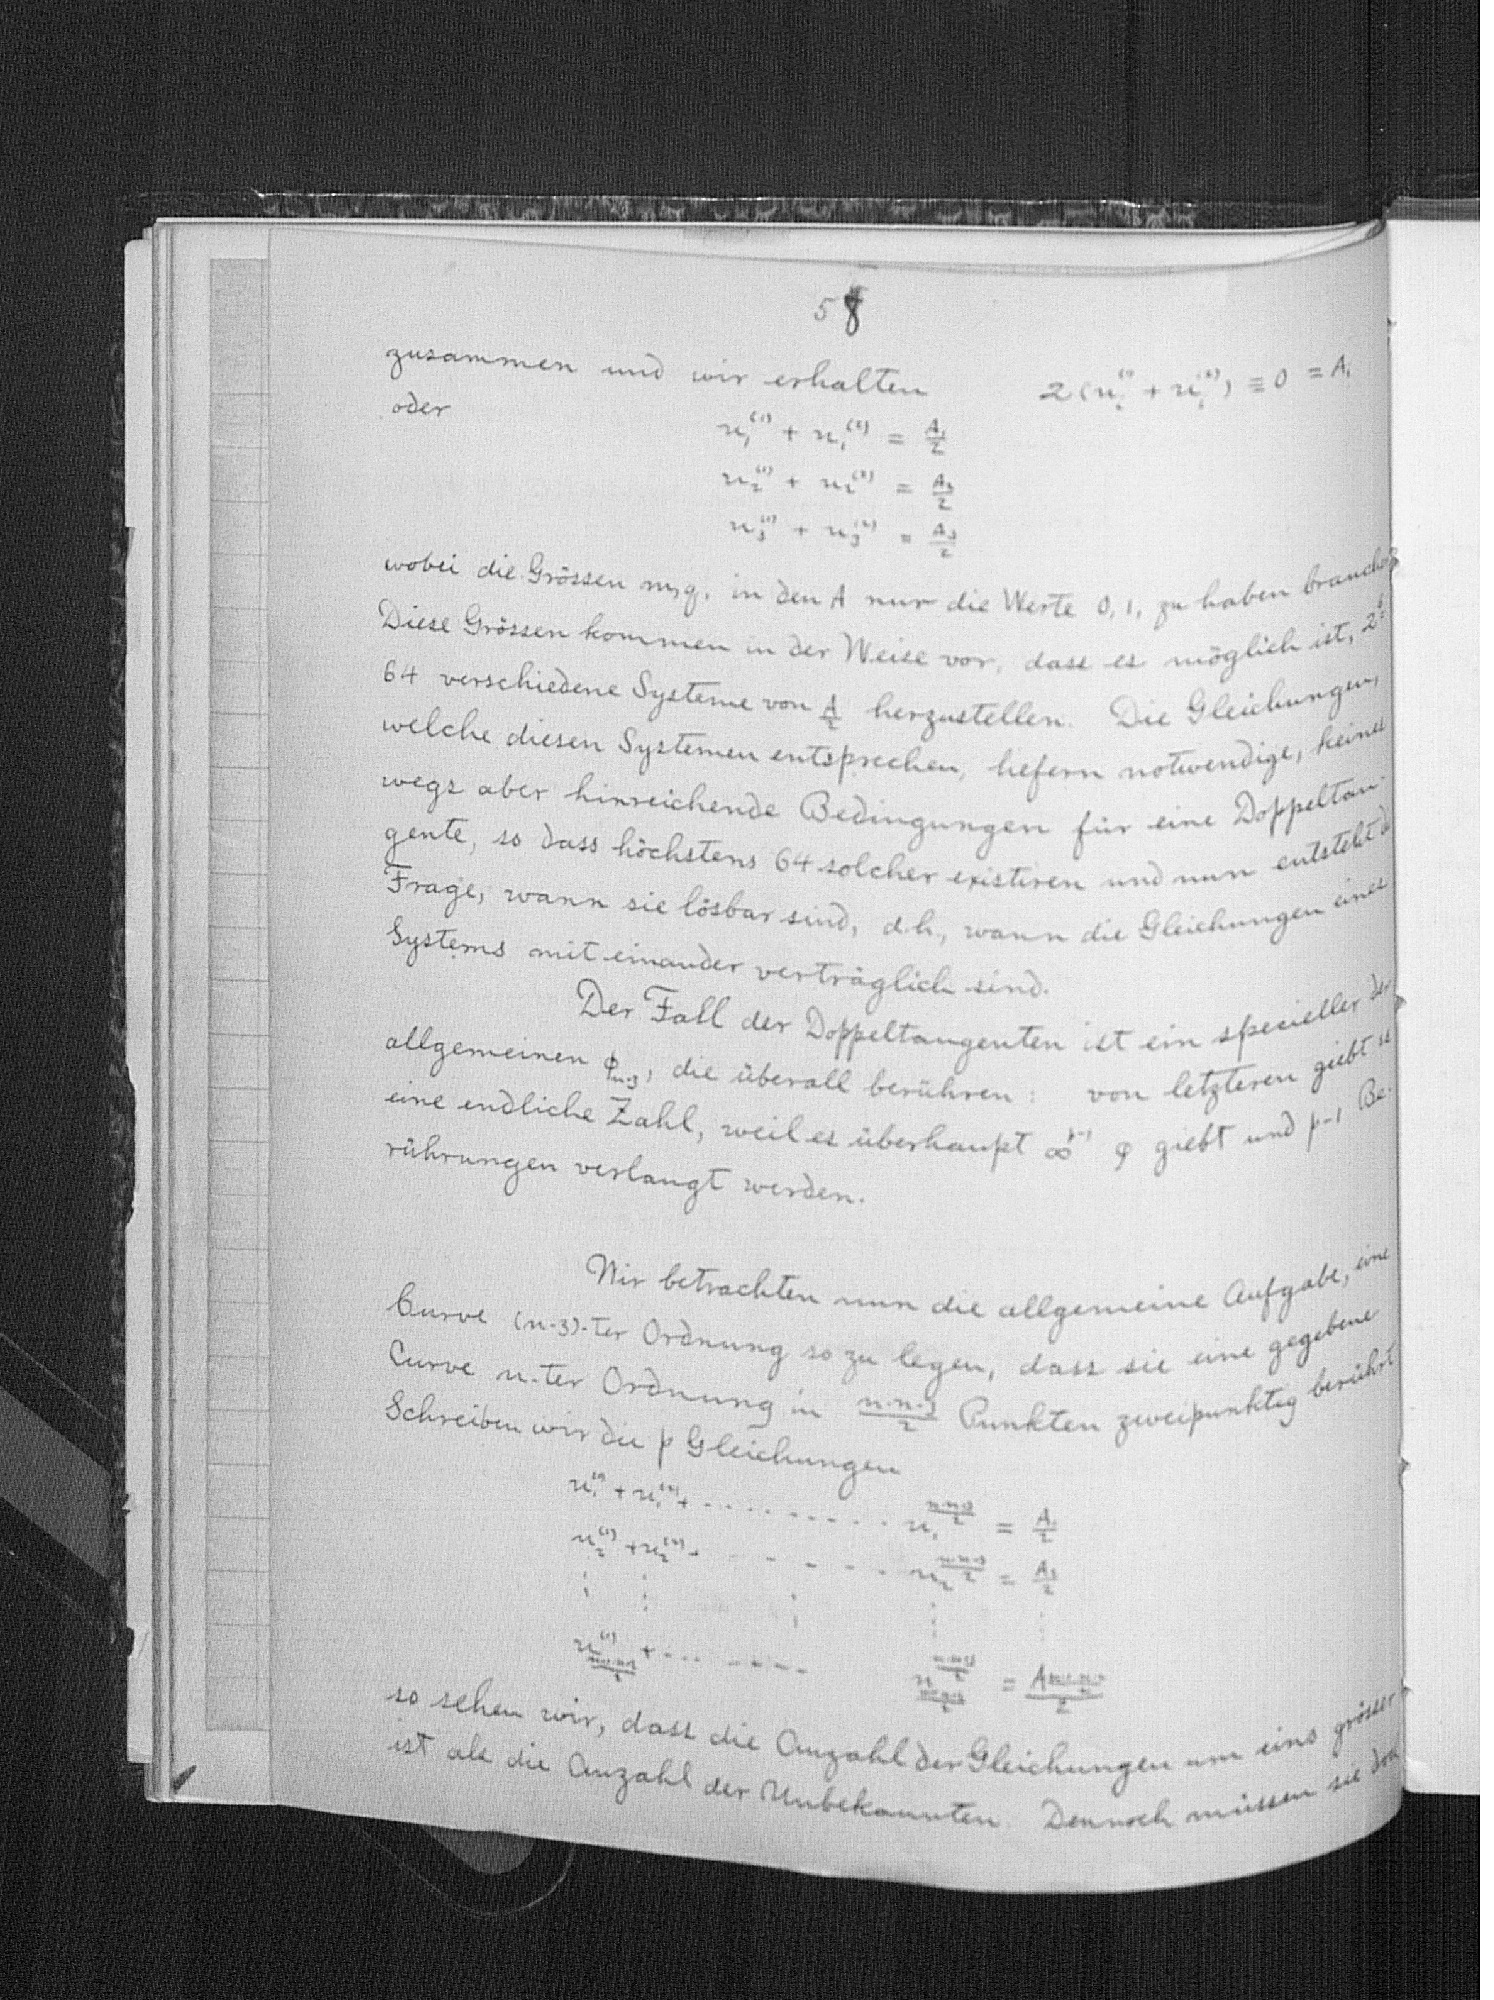 58
zusammen und wir erhalten 2(u_i^(1) + u_i^(2)) ≡ 0 = A_i
oder
u_1^(1) + u_1^(2) = A_1/2
u_2^(1) + u_2^(2) = A_2/2
u_3^(1) + u_3^(2) = A_3/2
wobei die Grössen m, q, in den A nur die Werte 0, 1, zu haben brauchen
Diese Grössen kommen in der Weise vor, dass es möglich ist, 2^6 =
64 verschiedene Systeme von A/2 herzustellen. Die Gleichungen,
welche diesen Systemen entsprechen, liefern notwendige, keines
wegs aber hinreichende Bedingungen für eine Doppeltan-
gente, so dass höchstens 64 solcher existiren und nun entsteht
Frage, wann sie lösbar sind, d.h., wann die Gleichungen eines
Systems mit einander verträglich sind.
Der Fall der Doppeltangenten ist ein specieller der
allgemeinen φ_{n-3}, die überall berühren: von letzteren giebt es
eine endliche Zahl, weil es überhaupt ∞^{p-1} φ giebt und p-1 Be-
rührungen verlangt werden.
Wir betrachten nun die allgemeine Aufgabe, eine
Curve (n-3)-ter Ordnung so zu legen, dass sie eine gegebene
Curve n-ter Ordnung in n·n-3/2 Punkten zweipunktig berührt
Schreiben wir die p Gleichungen
u_1^(1) + u_1^(2) + . . . . . . . . . . u_1^{n·n-3/2} = A_1/2
u_2^(1) + u_2^(2) + - - - - - u_2^{n·n-3/2} = A_2/2
⋮ ⋮ ⋮ ⋮ ⋮
u_{n-1·n-2/2}^(1) + . . . - - - - u_{n-1·n-2/2}^{n·n-3/2} = A_{n-1·n-2/2}/2
so sehen wir, dass die Anzahl der Gleichungen um eins grösser
ist als die Anzahl der Unbekannten. Dennoch müssen sie